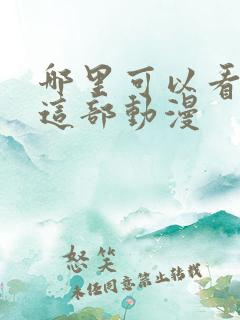 哪里可以看
這部動漫
怒笑
未任同意禁止转载